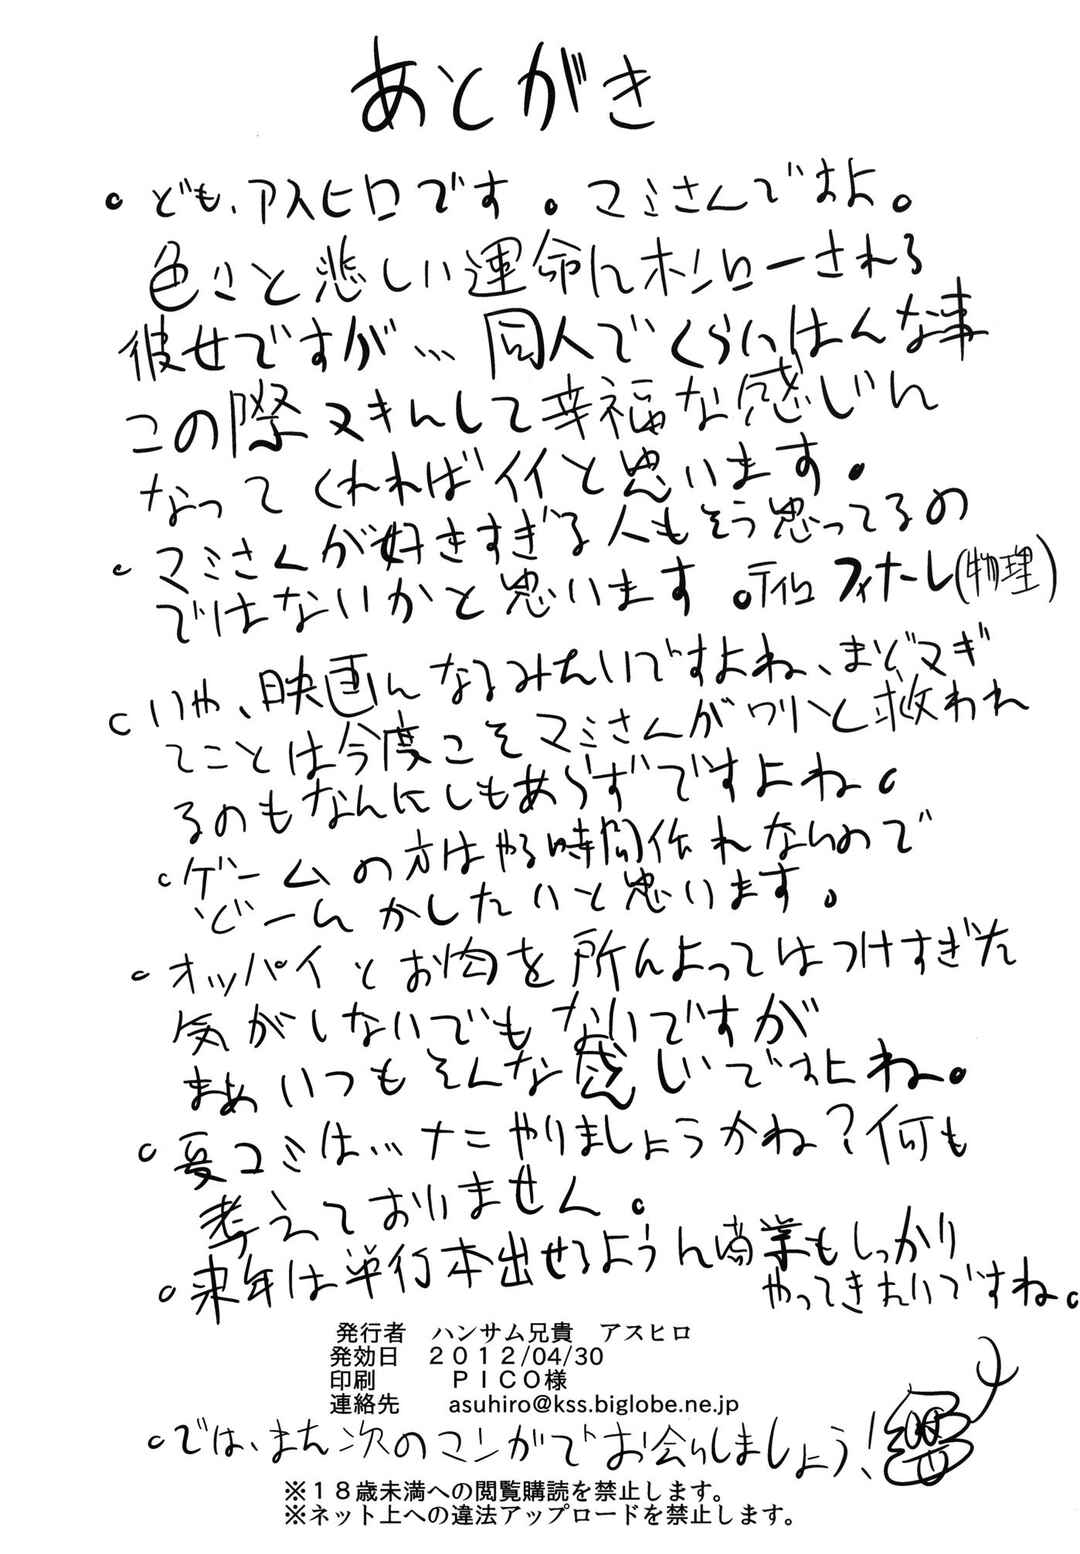 あとがき
・ども、アスヒロです。マミさんですよ。
色々と悲しい運命にホンローされる
彼女ですが…同人でくらいはんな事
この際ヌキんして幸福な感じに
なってくれればイイと思います。
・マミさんが好きすぎる人もそう思ってるの
ではないかと思います。ティロフィナーレ(物理)
・いや、映画になるみたいですよね、まどマギ
てことは今度こそマミさんがワリと救われ
るのもなんにしもあらずですよね。
・ゲームの方はやる時間作れないので
どーにかしたいと思います。
・オッパイとお肉を所によってはつけすぎた
気がしないでもないですが
まぁいつもそんな感じですよね。
・夏コミは…ナニやりましょうかね?何も
考えておりません。
・来年は単行本出せるように商業もしっかり
やってきたいですね。
発行者 ハンサム兄貴 アスヒロ
発効日 2012/04/30
印刷 PICO様
連絡先 asuhiro@kss.biglobe.ne.jp
・では、また次のマンガでお会いしましょう!
※18歳未満への閲覧購読を禁止します。
※ネット上への違法アップロードを禁止します。